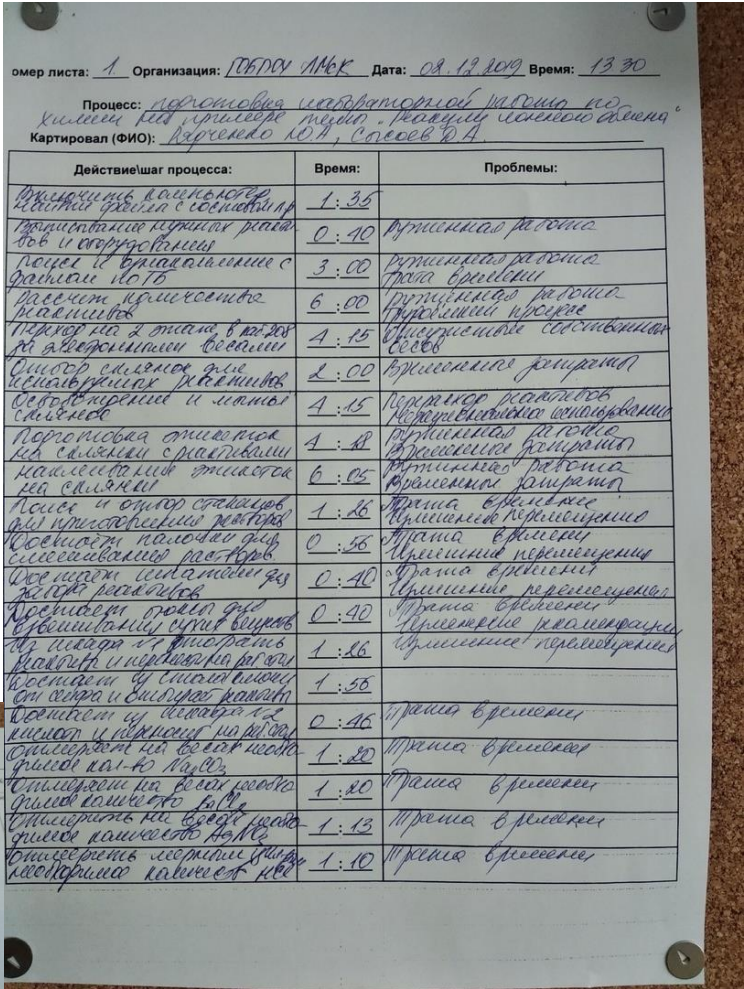 омер листа: 1. Организация: ГОБПОУ Дата: 02.12.2019 Время: 13 30
Процесс: подготовка лабораторной работы по
химии на примере темы "Реакции ионного обмена"
Картировал (ФИО): Ю.А, Сысоев Д.А.
Действие\шаг процесса: Время: Проблемы:
Включить компьютер
найти файла с составом пр
1:35
Выписывание нужных реакти
вов и оборудования
0:40
Рутинная работа
Поиск и ознакомление с
файлом по ТБ
3:00
Рутинная работа
Трата времени
Рассчет количества
реактивов
6:00
Рутинная работа
процесс
Переход на 2 этаж, в каб 208
за электронными весами
4:15
Отсутствие собственных
весов
Отбор склянок для
используемых реактивов
2:00
Временные затраты
Освобождение и мытье
склянок
4:15
Перерасход реактивов
использование
Подготовка этикеток
на склянки с реактивами
4:18
Рутинная работа
Временные затраты
Наклеивание этикеток
на склянки
6:05
Рутинная работа
Временные затраты
Поиск и отбор стаканов
для приготовления растворов
1:26
Трата времени
Излишние перемещения
Достаёт палочки для
смешивания растворов
0:56
Трата времени
Излишние перемещения
Достаёт шпатели для
забора реактивов
0:40
Трата времени
Излишние перемещения
Достаёт для
взвешивания сухих веществ
0:40
Трата времени
Из шкафа №1 отобрать
реактивы и перенести на раб стол
1:26
Излишние перемещения
Достает из стола ключи
от сейфа и отбирает реактивы
1:56
Достаёт из шкафа №2
кислоты и переносит на раб стол
0:46
Трата времени
Отмеряет на весах необхо
димое кол-во Na2CO3
1:20
Трата времени
Отмеряет на весах необхо
димое количество
1:20
Трата времени
Отмерить на весах необхо-
димое количество AgNO3
1:13
Трата времени
Отмерить мерным
необходимое количеств HCl
1:10
Трата времени